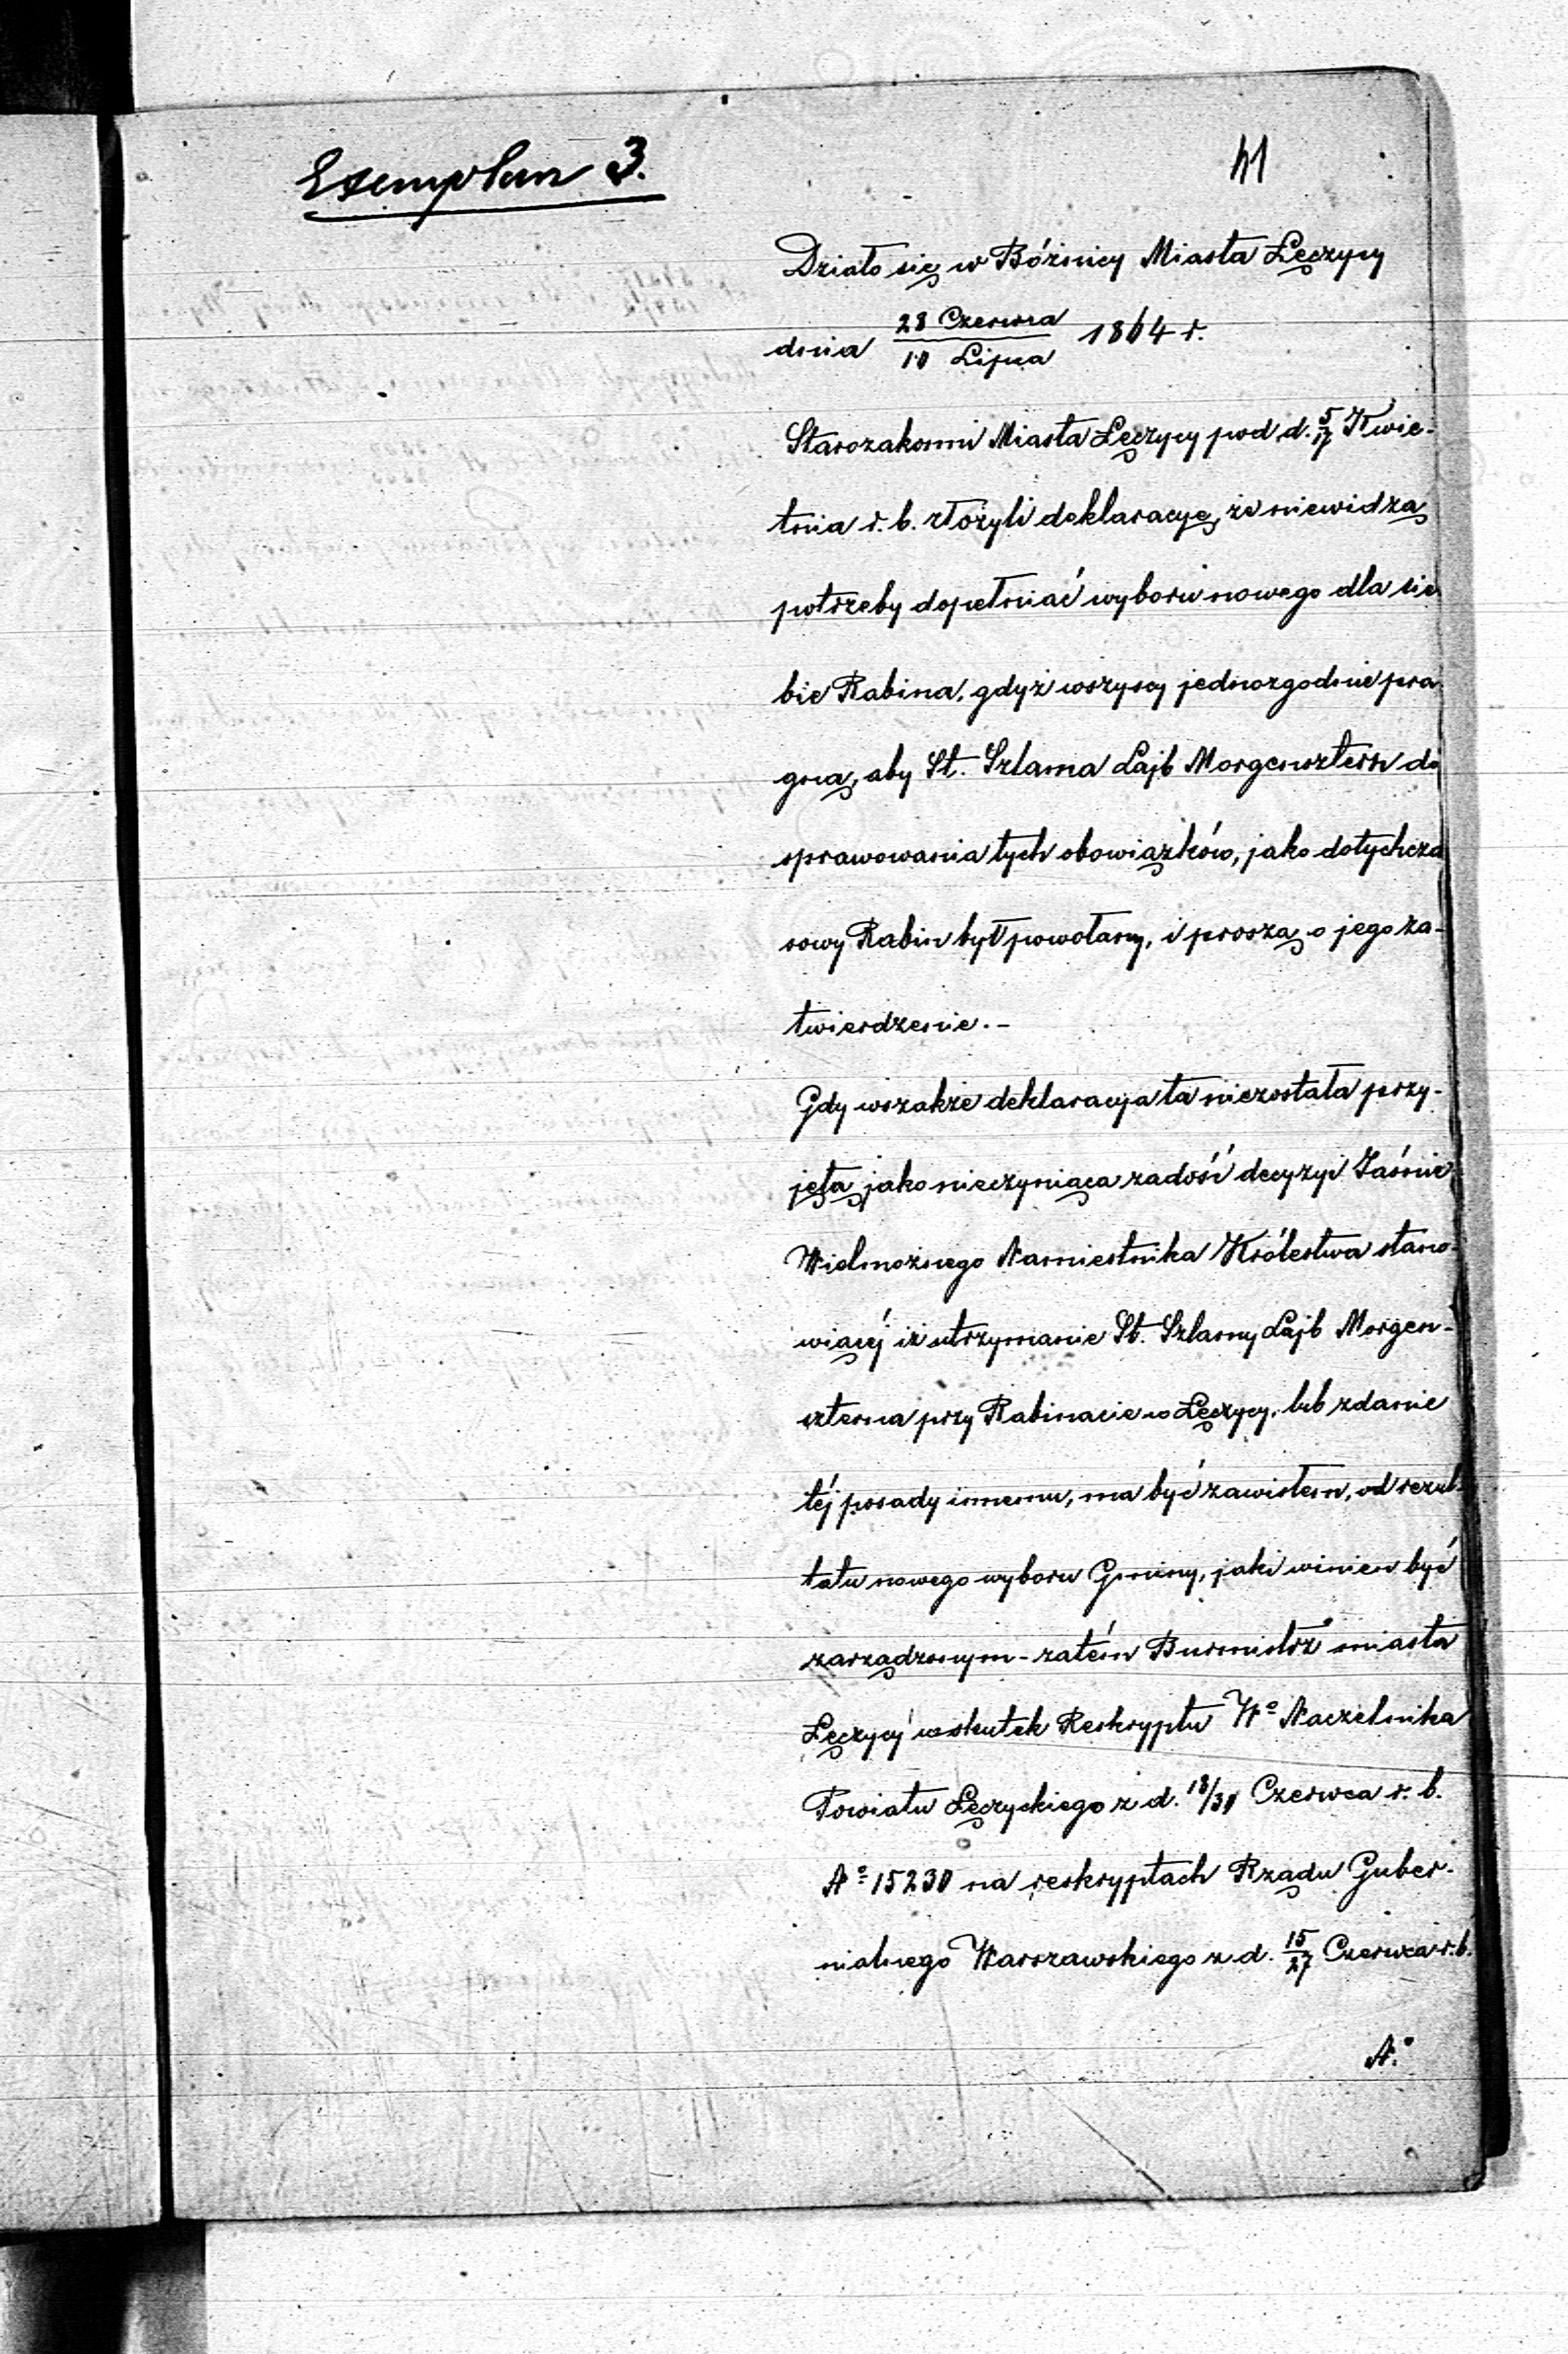 Exemplarz 3.
41
Działo się w Bóżnicy Miasta Łęczycy
dnia 28 Czerwca / 10 Lipca 1864 r.
Starozakonni Miasta Łęczycy pod d. 5/17 Kwie-
tnia r. b. złożyli deklaracyę, że niewidzą
potrzeby dopełniać wyboru nowego dla sie
bie Rabina, gdyż wszyscy jednozgodnie pra
gną, aby St. Szlama Lajb Morgensztern do
sprawowania tych obowiązków, jako dotychcza
sowy Rabin był powołany, i proszą o jego za-
twierdzenie. -
Gdy wszakże deklaracyja ta niezostała przy-
jętą jako nieczyniąca zadość decyzyi Jaśnie
Wielmożnego Namiestnika Królestwa stano-
wiącéj iż utrzymanie St. Szlamy Lajb Morgen-
szterna przy Rabinacie w Łęczycy, lub zdanie
téj posady innemu, ma być zawisłem, od rezul-
tatu nowego wyboru Gminy, jaki winien być
zarządzonym - zatém Burmistrz miasta
Łęczycy wskutek Reskryptu Wo Naczelnika
Powiatu Łęczyckiego z d. 18/30 Czerwca r. b.
No 15230 na reskryptach Rządu Guber-
nialnego Warszawskiego z d. 15/27 Czerwca r. b.
No